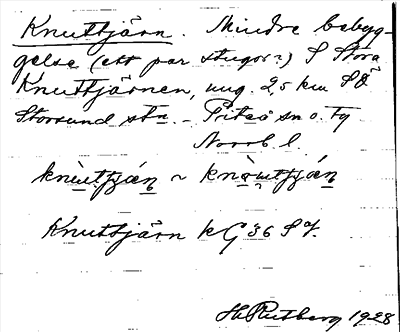 Knuttjärn. Mindre bebyg-
gelse (ett par stugor?) S Stora
Knuttjärnen, ung. 2,5 km SÖ
Storsund stn. - Piteå sn o. tg
Norrb. l.
knùttjạ́ṇ ~
Knuttjärn kG 36 SV.
H. Rutberg 1928